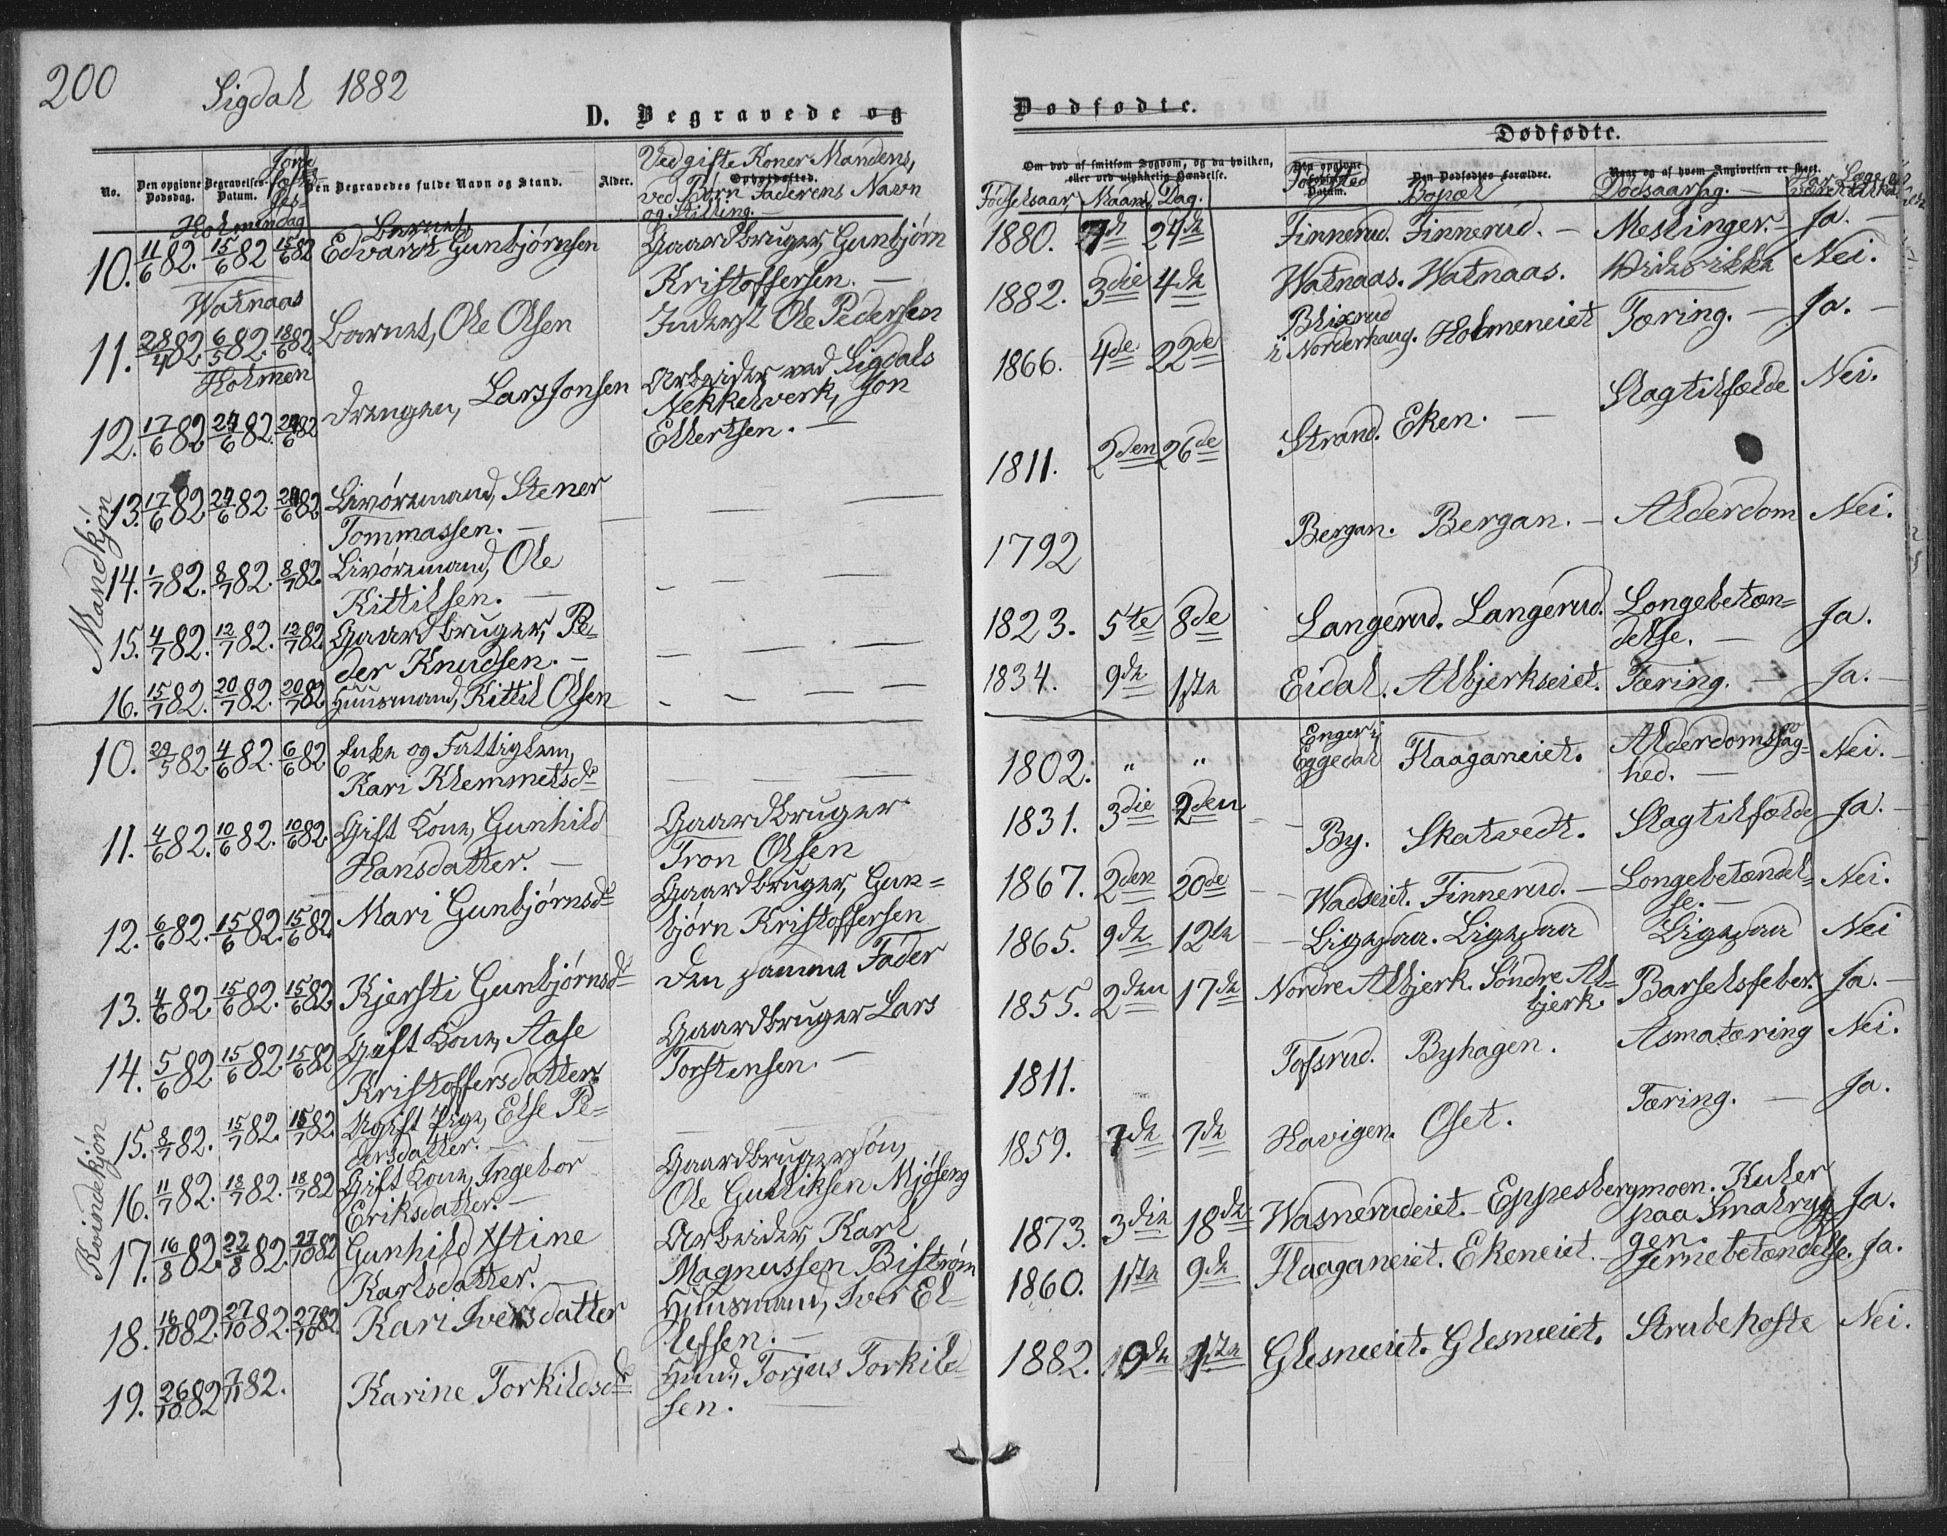 200 Sigdal 1882
D. Begravede og Dødfødte.
Dødfødte.
No.
Den opgivne Dødsdag.
Begravelses-Datum.
Den Begravedes fulde Navn og Stand.
Alder.
Ved gifte Koner Mandens,
Opholdssted.
ved Børn Faderens Navn
og Stilling.
Om død af smitsom Sygdom, og da hvilken,
eller ved ulykkelig Hændelse.
Fødselsaar, Maaned, Dag.
Den opgivne Fødsels-Datum.
Fødested
Den Dødfødtes Forældre.
Bopæl
Naar og af hvem Angivelsen er skeet.
Dødsaarsag.
Mandkjøn
Holmindag
10. 11/6 82. 15/6 82 15/6 82 Barnet Edvard Gunbjørnsen Gaardbruger, Gunbjørn Kristoffersen. — 1880. 7de 24de Finnerud. Finnerud. — Meslinger. — Ja. —
Watnaas
11. 28/4 82 6/5 82. 18/6 82. Barnet, Ole Olsen Inderst Ole Pedersen 1882. 3die 4de Watnaas. Watnaas. Vides ikke Nei.
Holmen
12. 17/6 82 24/6 82. 24/6 82 Drengen, Lars Jonsen Arbeider ved Sigdals Nekkelverk, Jon Ellertsen. — 1866. 4de 22de Blixrud i Norderhaug. Holmeneiet Tæring. — Ja. —
13. 17/6 82. 24/6 82. 24/6 82 Livøremand, Stener Tommassen. — 1811. 2den 26de Strand. Eken. — Slagtilfælde Nei.
14. 1/7 82. 8/7 82. 8/7 82. Livøremand, Ole Kittilsen. — 1792 Bergan. Bergan. — Alderdom Nei.
15. 4/7 82. 12/7 82. 12/7 82. Gaardbruger, Peder Knudsen. — 1823. 5te 8de Langerud. Langerud. Longebetændelse. — Ja.
16. 15/7 82. 20/7 82. 20/7 82. Huusmand, Kittil Olsen 1834. 9de 1ste Eidal. Albjerkseiet. Tæring. — Ja. —
Kvindekjøn
10. 29/5 82. 4/6 82. 6/6 82. Enke og Fattiglem, Kari Klemmetsdr 1802. " " Enger i Eggedal Flaaganeiet. Alderdomssvaghed. — Nei. —
11. 4/6 82. 10/6 82. 10/6 82. Gift Kone, Gunhild Hansdatter. — Gaardbruger Tron Olsen 1831. 3die 2den By. Skatvedt. Slagtilfælde Ja. —
12. 6/6 82. 15/6 82. 15/6 82. Mari Gunbjørnsdr Gaardbruger, Gunbjørn Kristoffersen 1867. 2den 20de Wadseiet. Finnerud. — Longebetændelse. — Nei.
13. 4/6 82. 15/6 82. 15/6 82. Kjersti Gunbjørnsdr Den samme Fader 1865. 9de 12te Ligesaa. Ligesaa Ligesaa Nei
14. 5/6 82 15/6 82. 15/6 82 Gift Kone, Aase Kristoffersdatter. Gaardbruger Lars Torstensen. — 1855. 2den 17de Nordre Albjerk. Søndre Albjerk. Barselsfeber. Ja. —
1811. Tofsrud. Byhagen. Asmatæring Nei.
15. 8/7 82. 15/7 82. 15/7 82. Ugift Pige, Else Pedersdatter. — 1859. 7de 7de Havigen. Oset. Tæring. — Ja.
16. 11/7 82. 18/7 82. 18/7 82 Gift Kone, Ingebor Eriksdatter. — Gaardbrugersøn, Ole Gulliksen Mjøseng
17. 16/8 82. 22/8 82. 27/10 82 Gunhild Kstine Karlsdatter. Arbeider, Karl Magnussen Bistrøm 1873. 3die 18de Wasnerudeiet. Eppesbergmoen. Kuler paa Smalryggen. Ja.
18. 16/10 82. 27/10 82. 27/10 82. Kari Iversdatter Huusmand, Iver Ellefsen. — 1860. 1ste 9de Flaaganeiet. Ekeneiet. Jernebetændelse. Ja.
19. 26/10 82 7/11 82. Karine Torkildsdr Huud., Torjus Torkildsen. — 1882. 10de 1ste Glesneeiet. Glesneeiet. Strubehoste Nei.